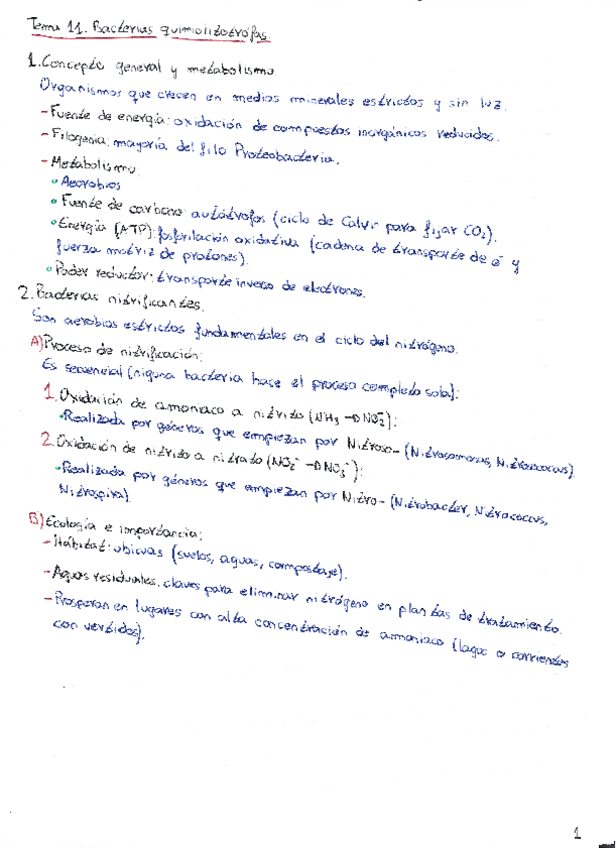 Tema 11. Bacterias quimiolitotrófas.
1. Concepto general y metabolismo
Organismos que crecen en medios minerales estrictos y sin luz.
- Fuente de energía: oxidación de compuestos inorgánicos reducidos.
- Filogenia: mayoría del filo Proteobacteria.
- Metabolismo:
• Aerobios
• Fuente de carbono: autótrofos (ciclo de Calvin para fijar CO₂).
• Energía (ATP): fosforilación oxidativa (cadena de transporte de e⁻ y
fuerza motriz de protones).
• Poder reductor: transporte inverso de electrones.
2. Bacterias nitrificantes.
Son aerobios estrictos fundamentales en el ciclo del nitrógeno.
A) Proceso de nitrificación:
Es secuencial (niguna bacteria hace el proceso completo sola):
1. Oxidación de amoniaco a nitrito (NH₃ → NO₂⁻):
• Realizada por géneros que empiezan por Nitroso- (Nitrosomonas, Nitrosococus)
2. Oxidación de nitrito a nitrato (NO₂⁻ → NO₃⁻):
• Realizada por géneros que empiezan por Nitro- (Nitrobacter, Nitrococus,
Nitrospira).
B) Ecología e importancia:
- Hábitat: ubicuas (suelos, aguas, compostaje).
- Aguas residuales: claves para eliminar nitrógeno en plantas de tratamiento.
- Prosperan en lugares con alta concentración de amoniaco (lagos o corrientes
con vertidos).
1